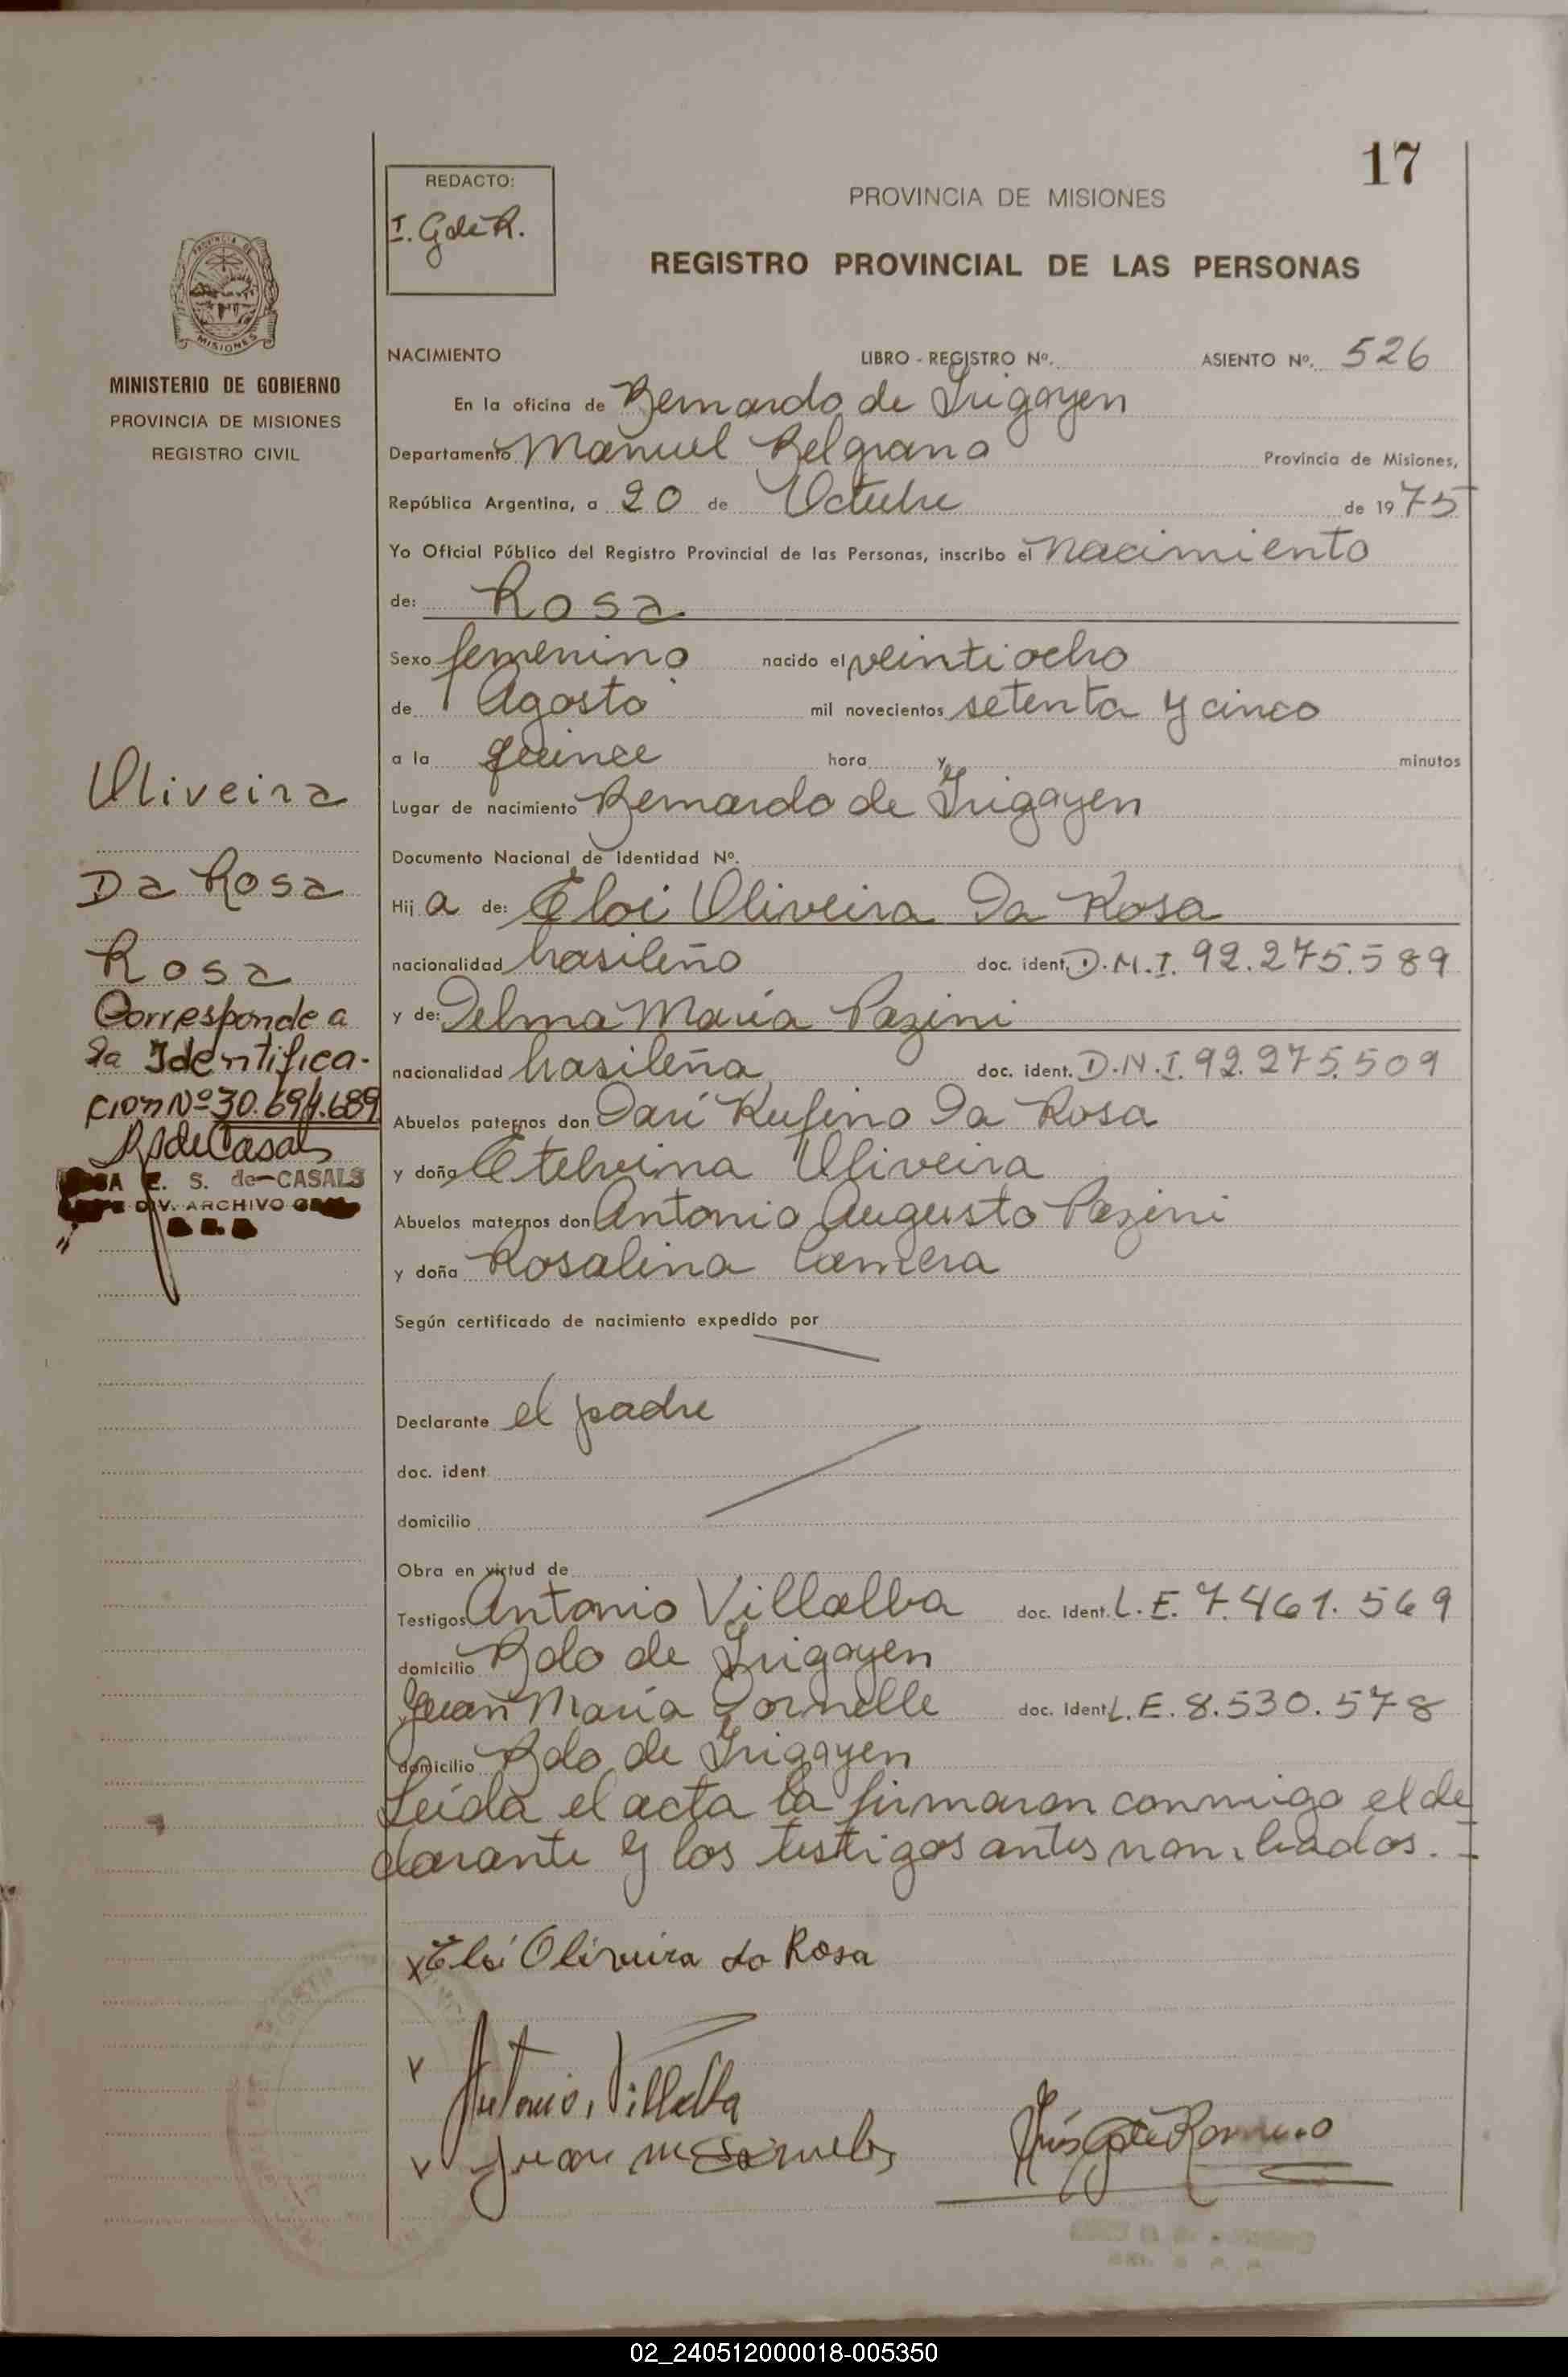 17
REDACTO:
I. G de R.
PROVINCIA DE MISIONES
REGISTRO PROVINCIAL DE LAS PERSONAS
MISIONES
MINISTERIO DE GOBIERNO
PROVINCIA DE MISIONES
REGISTRO CIVIL
NACIMIENTO LIBRO - REGISTRO Nº. ASIENTO Nº. 526
En la oficina de Bernardo de Irigoyen
Departamento Manuel Belgrano Provincia de Misiones,
República Argentina, a 20 de Octubre de 1975
Yo Oficial Público del Registro Provincial de las Personas, inscribo el nacimiento
de: Rosa
Sexo femenino nacido el veintiocho
de Agosto mil novecientos setenta y cinco
a la quince hora y minutos
Lugar de nacimiento Bernardo de Irigoyen
Documento Nacional de Identidad Nº.
Hij a de: Eloi Oliveira Da Rosa
nacionalidad brasileño doc. ident. D.N.I. 92.275.589
y de: Delma María Pazini
nacionalidad brasileña doc. ident. D.N.I. 92.275.509
Abuelos paternos don Darí Rufino Da Rosa
y doña Etelvina Oliveira
Abuelos maternos don Antonio Augusto Pazini
y doña Rosalina Camera
Según certificado de nacimiento expedido por
Declarante el padre
doc. ident.
domicilio
Obra en virtud de
Testigos Antonio Villalba doc. Ident. L.E. 7.461.569
domicilio Bdo de Irigoyen
Juan María Dornelle doc. Ident. L.E. 8.530.578
domicilio Bdo de Irigoyen
Leída el acta la firmaron conmigo el de
clarante y los testigos antes nombrados.
x Eloi Oliveira da Rosa
Antonio Villalba
Juan M
Oliveira
Da Rosa
Rosa
Corresponde a
la Identifica-
cion Nº 30.694.689
R S de Casals
E. S. de CASALS
DIV. ARCHIVO
02_240512000018-005350